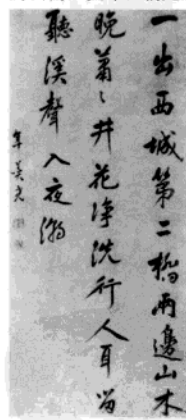 一出西城第二橋兩邊山木
晚蕭〻井花淨洗行人耳留
聽溪聲入夜潮
年羹堯